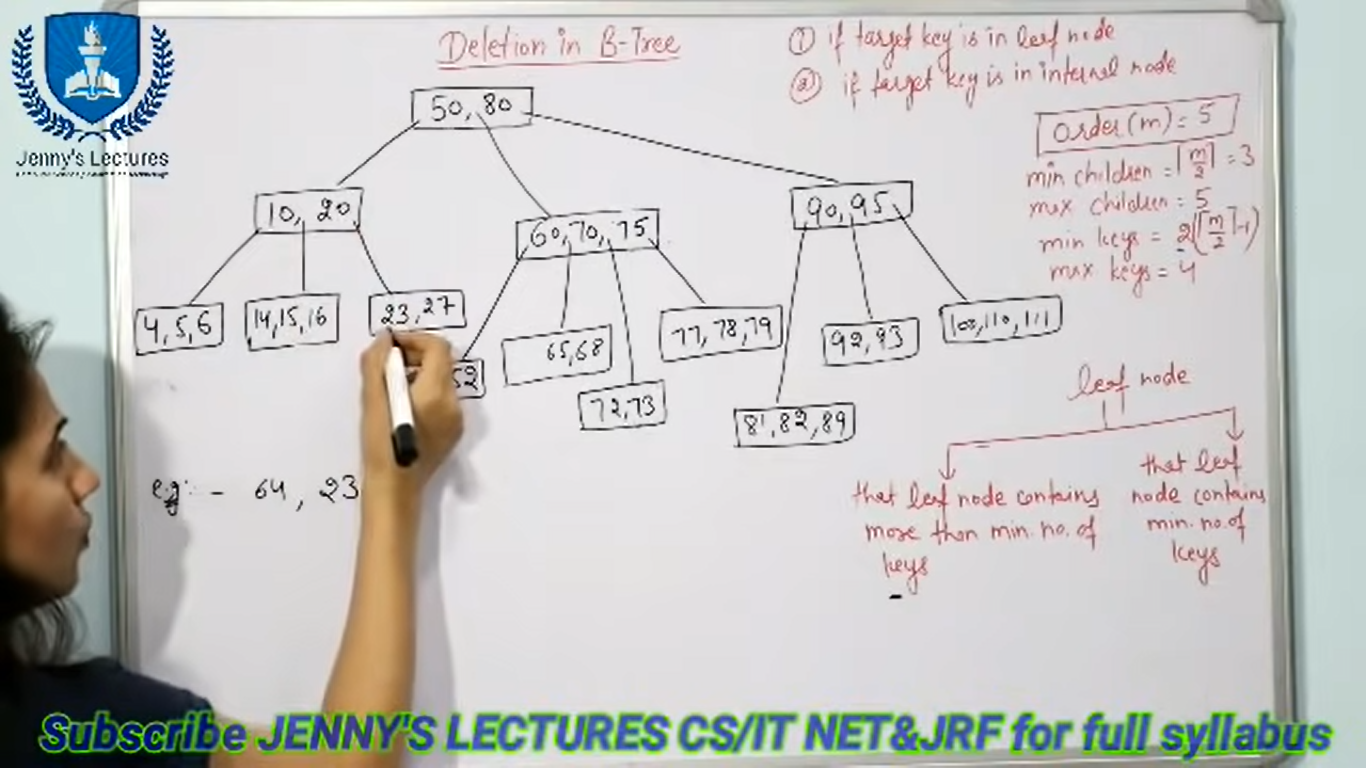 Jenny's Lectures
Deletion in B-Tree
① if target key is in leaf node
② if target key is in internal node
50, 80
Order(m) = 5
min children = ⌈m/2⌉ = 3
max children = 5
min keys = 2 (⌈m/2⌉-1)
max keys = 4
10, 20
60, 70, 75
90, 95
4, 5, 6
14, 15, 16
23, 27
52
65, 68
72, 73
77, 78, 79
81, 82, 89
92, 93
100, 110, 111
leaf node
that leaf node contains
more than min. no. of
keys
that leaf
node contains
min. no. of
keys
e.g:- 64, 23
Subscribe JENNY'S LECTURES CS/IT NET&JRF for full syllabus